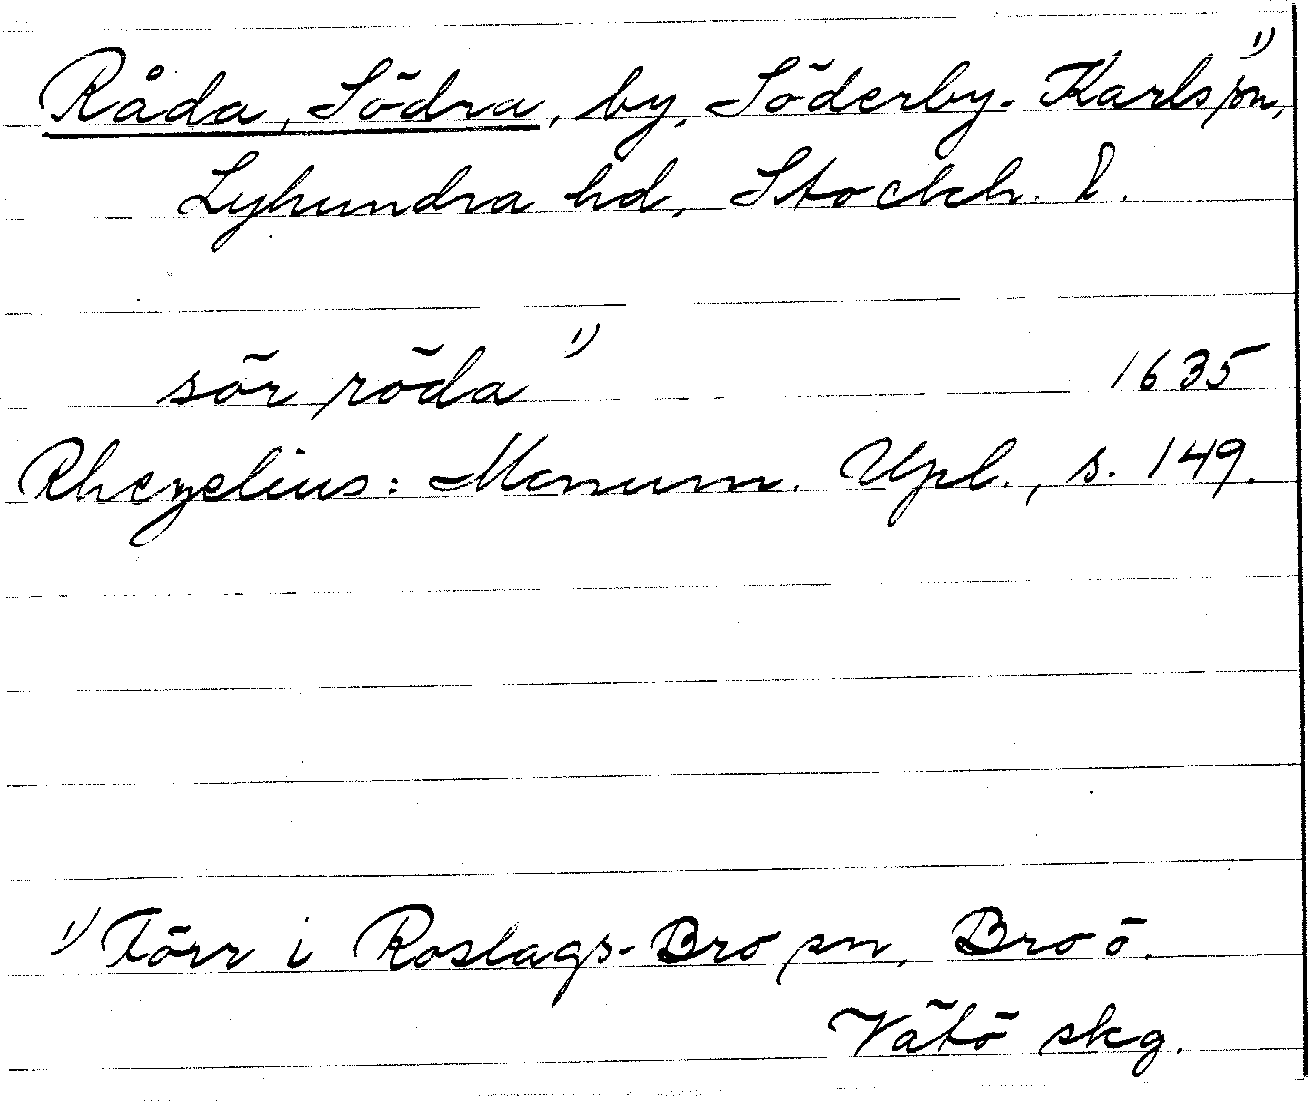 Råda, Södra, by, Söderby-Karls sn, ¹)
Lyhundra hd, Stockh. l.
sör röda ¹) 1635
Rhezelius: Monum. Upl., s. 149.
¹) Förr i Roslags-Bro sn, Broö.
Vätö skg.